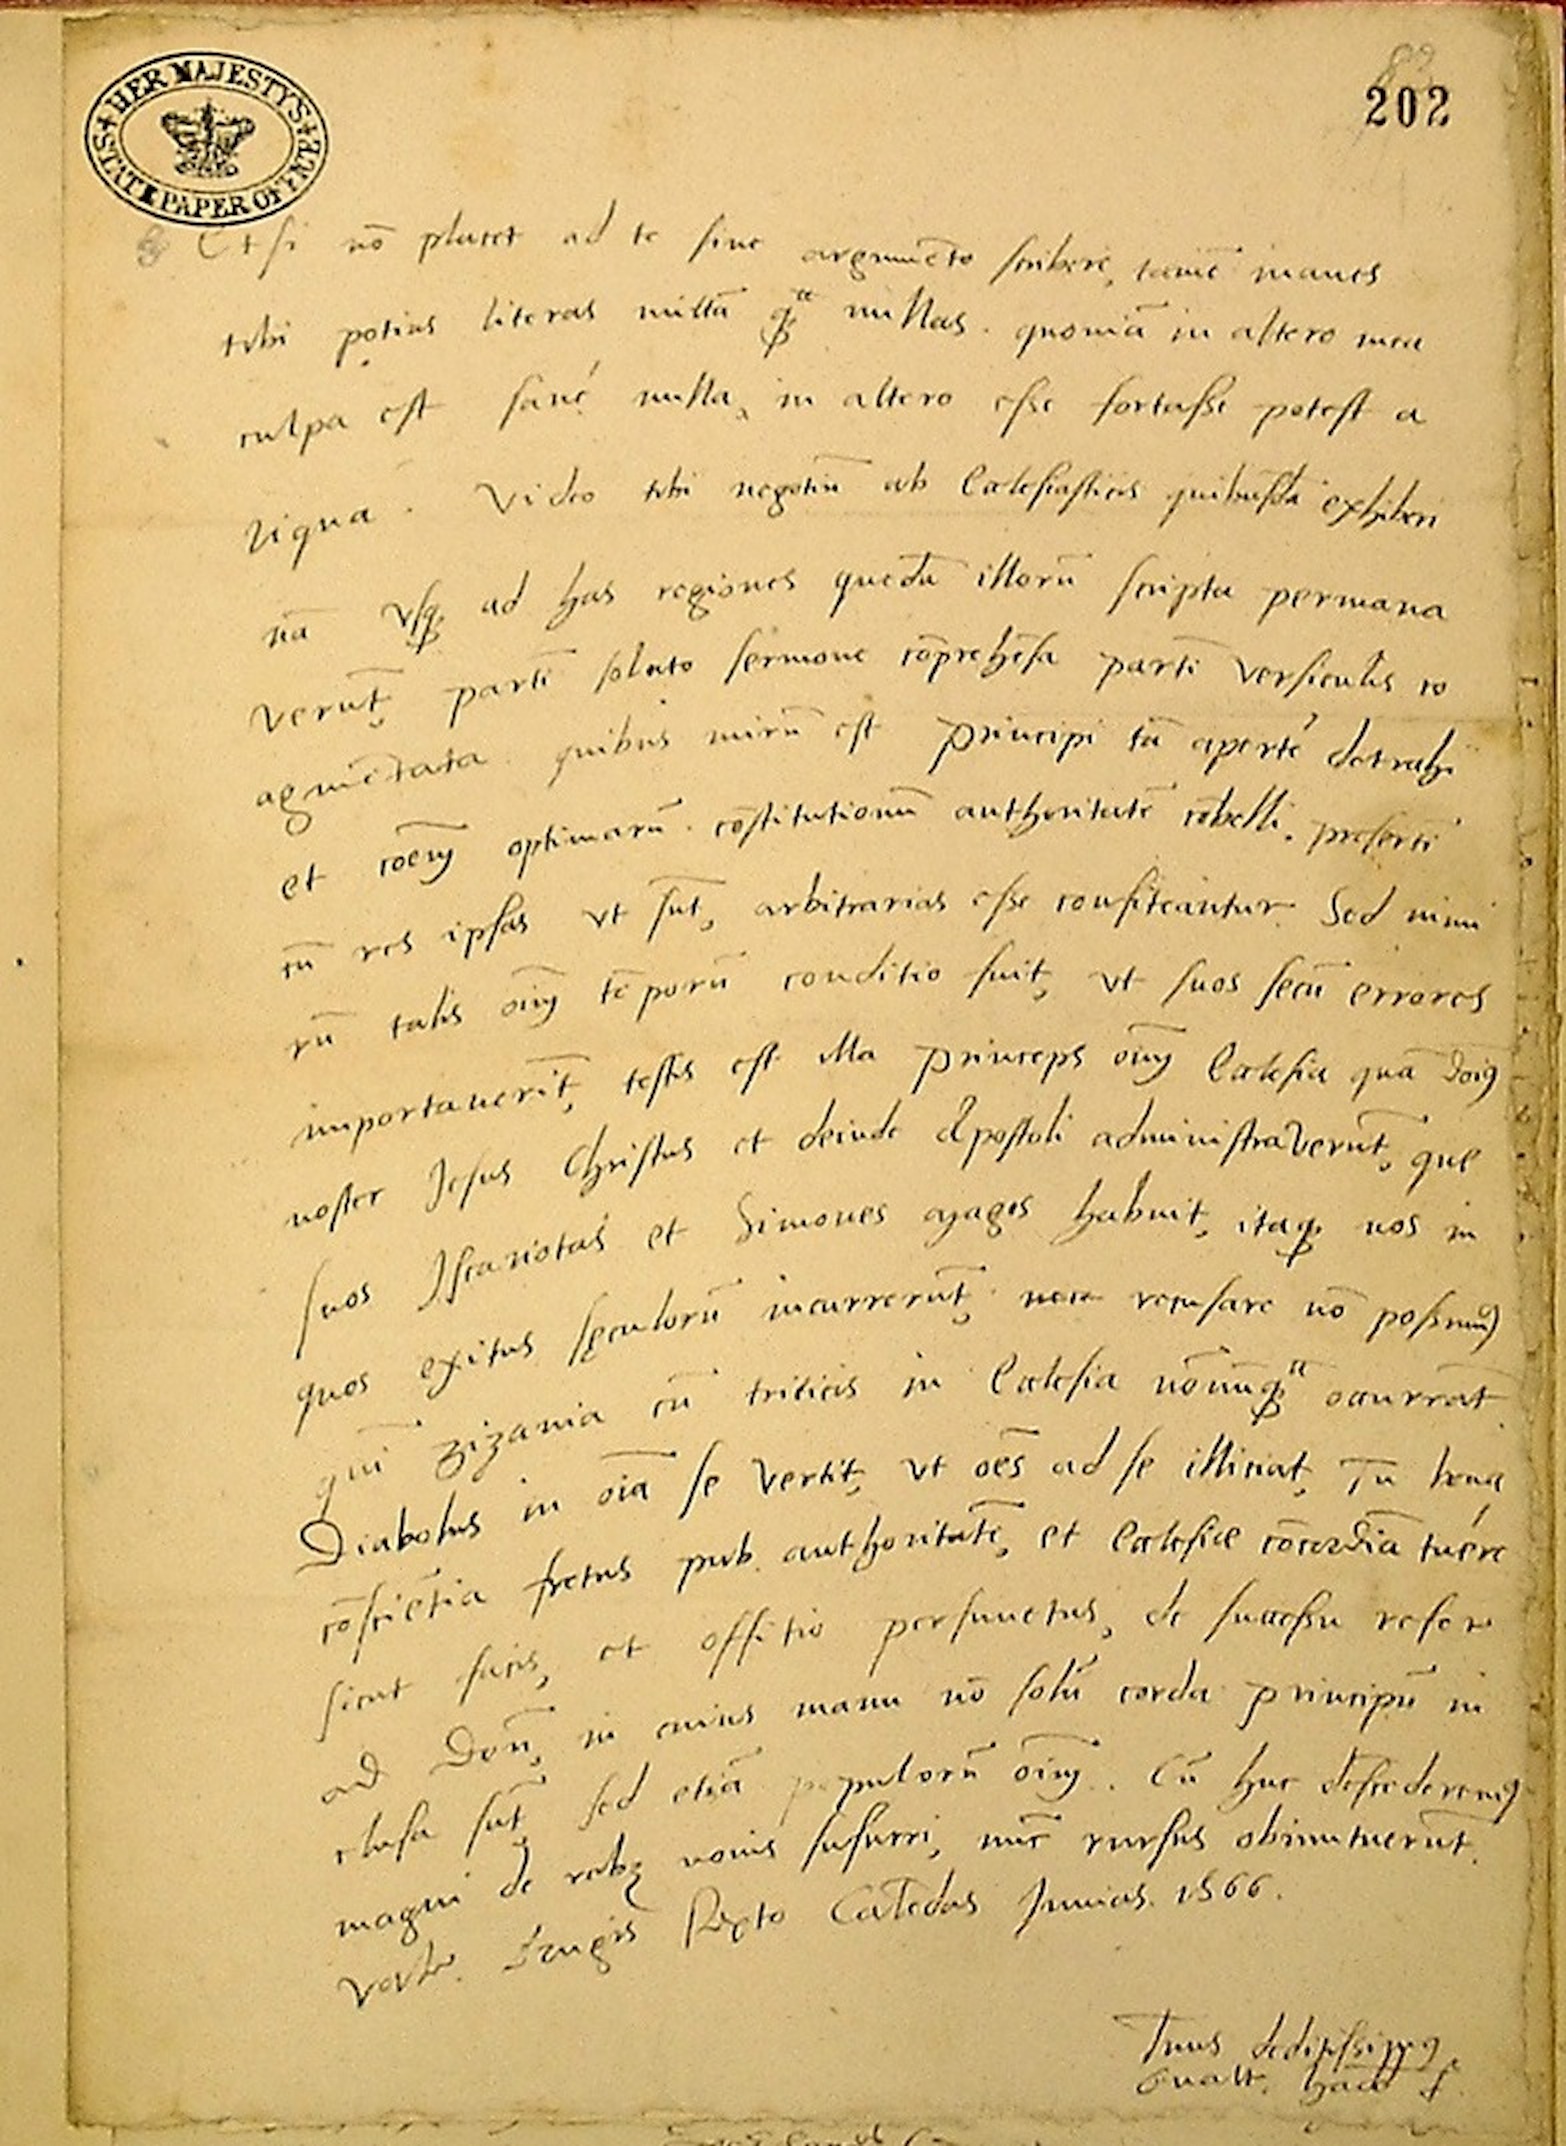 HER MAJESTY'S STATE PAPER OFFICE
202
Etsi nō placet ad te sine argumēto scribere, tamē inanes
tibi potius literas mittā q̄ nullas. quoniā in altero mea
culpa est sané nulla, in altero esse fortasse potest a
liqua. Video tibi negotiū ab Ecclesiasticis quibusdā exhiberi
nā vsq; ad has regiones quedā illorū scripta permana
verūt, partī soluto sermone cōprehēsa partī versiculis co
agmētata. quibus mirū est Principi tā aperté detrahi
et optimarū cōstitutionū authoritatē cōvelli. presertī
cū res ipsas vt sūt, arbitrarias esse confiteantur. Sed nimi
rū talis oīm tēporū conditio fuit, vt suos secū errores
importauerīt, testis est illa Princeps oīm Ecclesia quā
noster Jesus Christus et deinde Apostoli administraverūt, que
suos Iscariotas et Simones Magos habuit, itaq; nos in
quos exitus sęculorū incurrerūt recusare nō possum9
quī zizania cū triticis in Ecclesia nōnūq̄ occurrāt
Diabolus in oīa se vertit, vt oēs ad se illiciat, Tu bona
cōsciētia fretus pub. authoritatē, et Ecclesiæ cōcordiā tuére
sicut facis, et offitio perfunctus, de successu refer
ad Deū, in cuius manu nō solū corda principū in
clusa sūt sed etiā populorū oīm. Cū huc descēderem9
magni de reb9 nouis susurri, nūc rursus obmutuerūt.
Vale. Brugis Sexto Calēdas Junias. 1566.
Tuus deditissim9
Gualt. Hadd